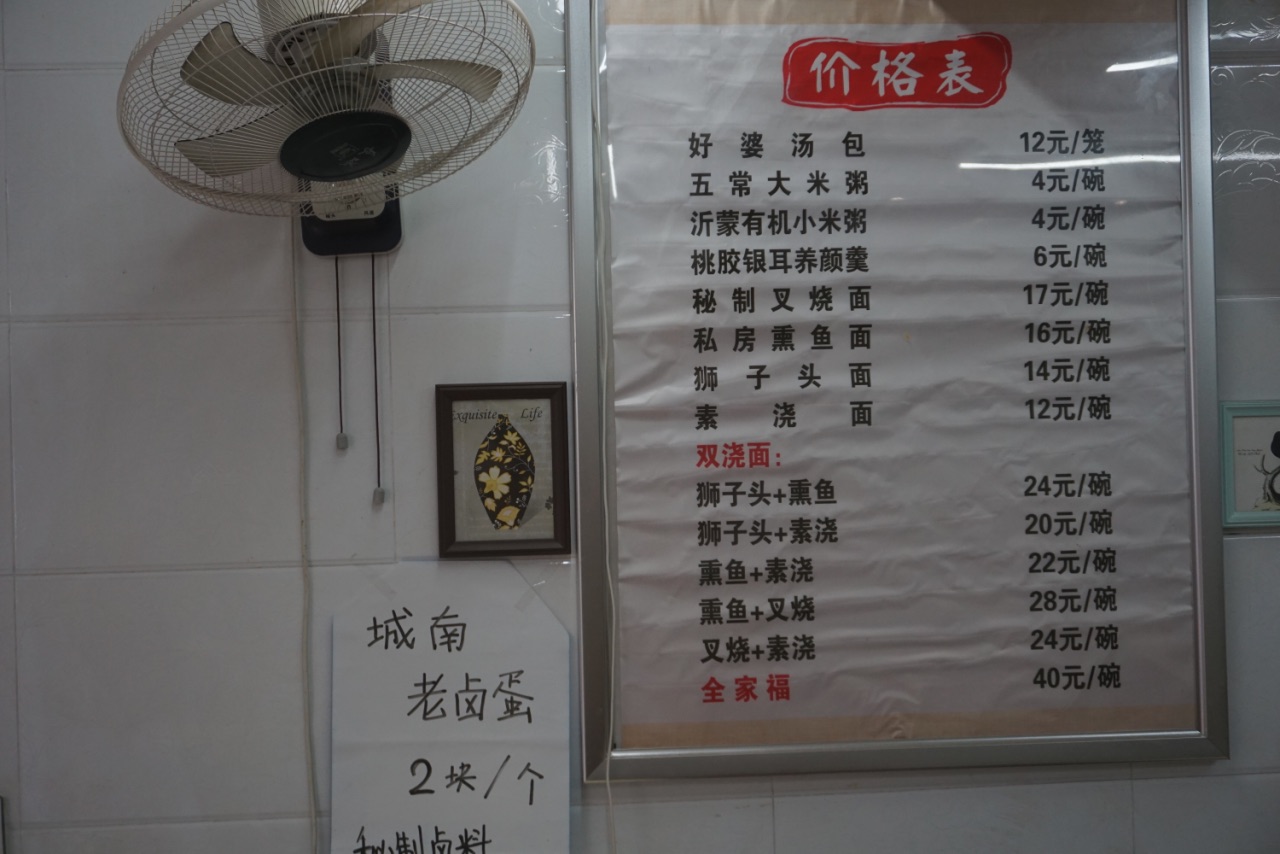 价格表
好婆汤包 12元/笼
五常大米粥 4元/碗
沂蒙有机小米粥 4元/碗
桃胶银耳养颜羹 6元/碗
秘制叉烧面 17元/碗
私房熏鱼面 16元/碗
狮子头面 14元/碗
素浇面 12元/碗
双浇面：
狮子头+熏鱼 24元/碗
狮子头+素浇 20元/碗
熏鱼+素浇 22元/碗
熏鱼+叉烧 28元/碗
叉烧+素浇 24元/碗
全家福 40元/碗
Exquisite Life
城南
老卤蛋
2块/个
秘制卤料